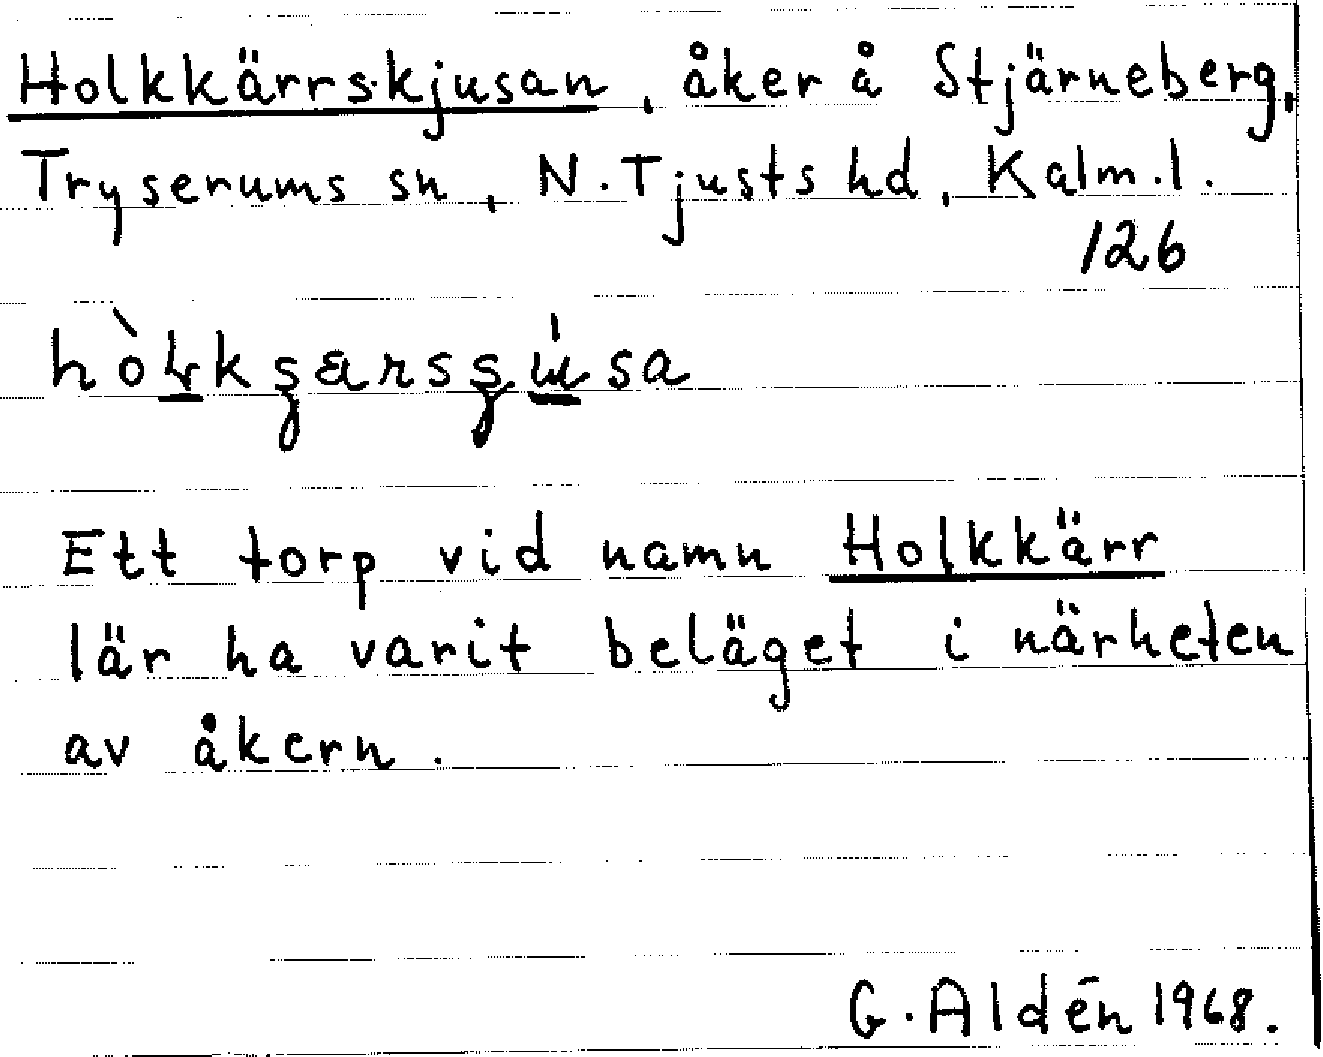 Holkkärrskjusan, åker å Stjärneberg,
Tryserums sn, N. Tjusts hd, Kalm. l.
126
Ett torp vid namn Holkkärr
lär ha varit beläget i närheten
av åkern.
G. Aldén 1968.